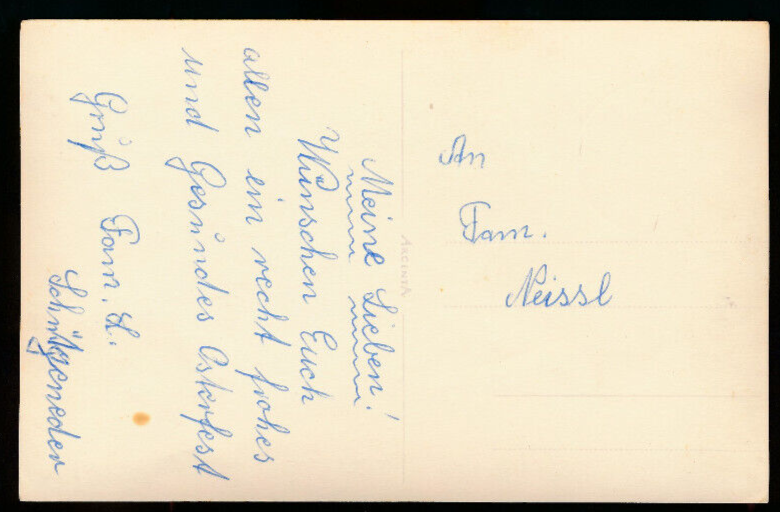 Meine Lieben!
Wünschen Euch
allen ein recht frohes
und Gesundes Osterfest
Gruß Fam. L.
An
Fam.
Neissl